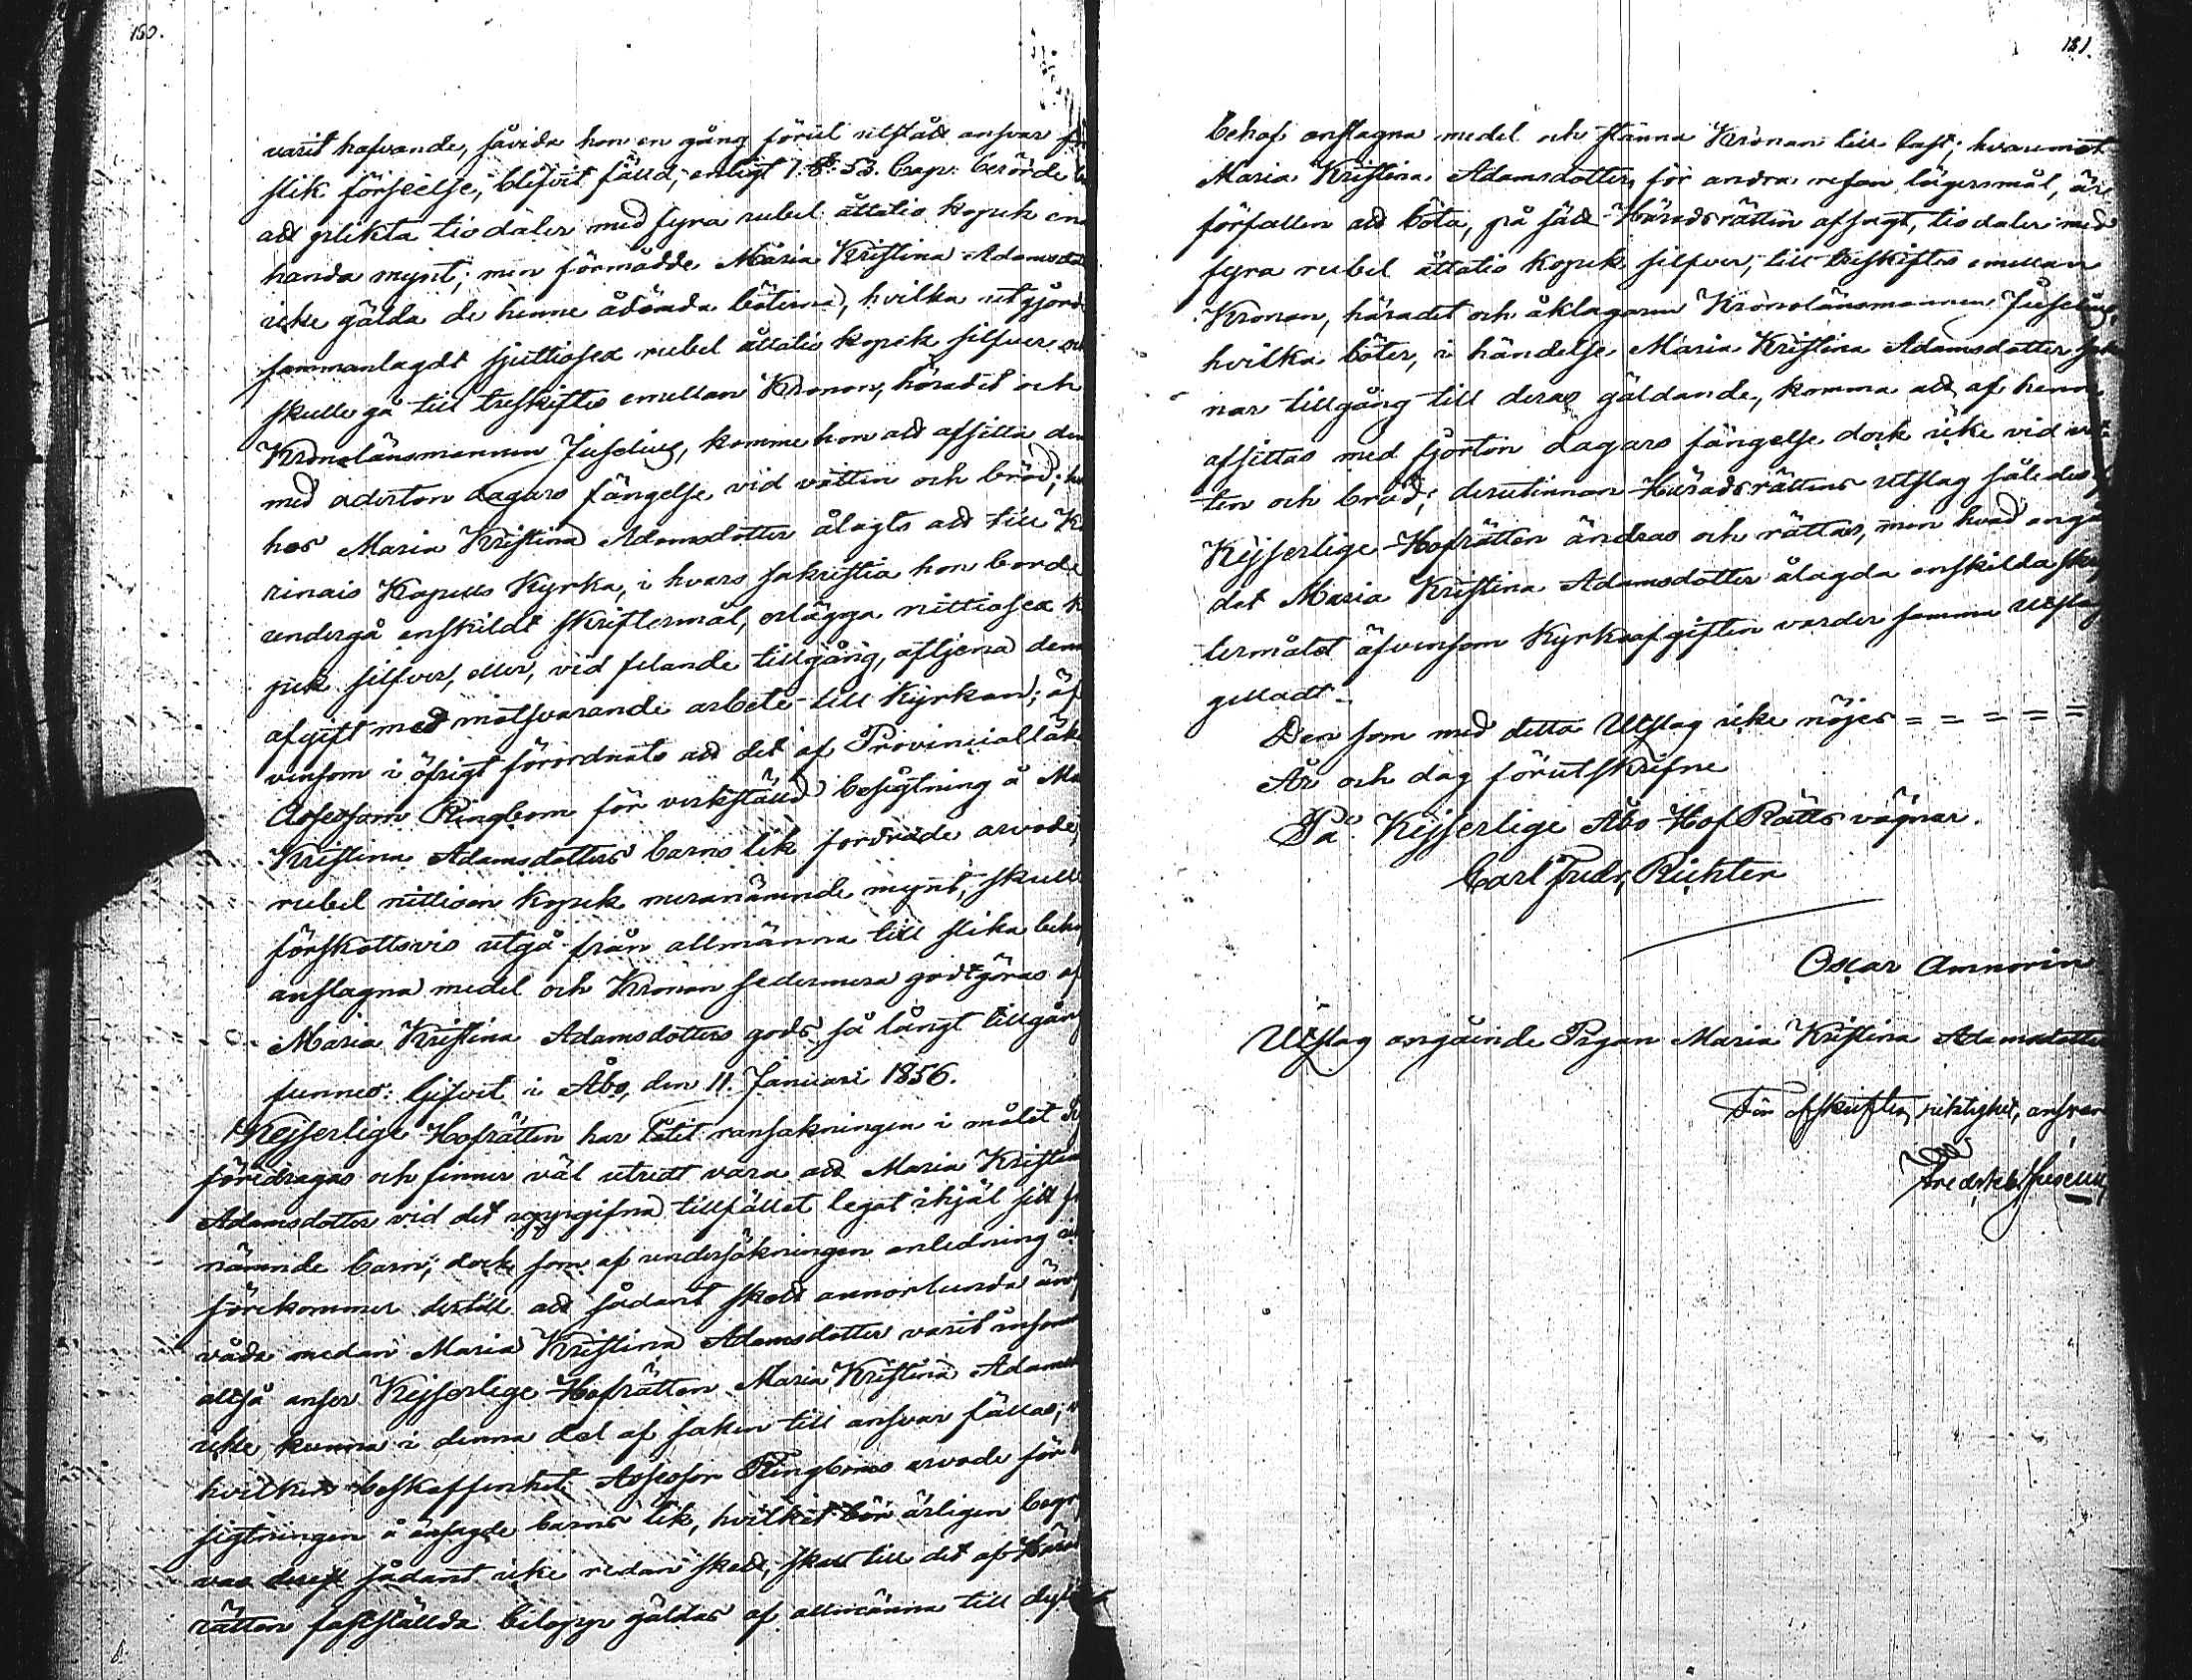 150.
varit hafvande, såvida hon en gång förut utstått ansvar
slik förseelse, blifvit fälld, enligt 7. §. 53. Cap. berörde
att plikta tio daler med fyra rubel åttatio kopek ena
handa mynt; men förmådde Maria Kristina Adamsdotter
icke gälda de henne ådömda böterna, hvilka utgjorde
sammanlagdt sjuttiosex rubel åttatio kopek silfver och
skulle gå till treskiftes emellan Kronan, häradet och
Kronolänsmannen Juselius, komme hon att afsitta dem
med aderton dagars fängelse vid vatten och bröd;
hos Maria Kristina Adamsdotter ålagts att till
rinais Kapells Kyrka, i hvars sakristia hon borde
undergå enskildt skriftermål, erlägga nittiosex
pek silfver, eller, vid felande tillgång, aftjena denna
afgift med motsvarande arbete till Kyrkan; äf
vensom i öfrigt förordnats att det af Provinciall
Assessorn Ringbom för verkställd besigtning å
Kristina Adamsdotters barns lik fordrade arvode,
rubel nittioen kopek meranämnde mynt, skulle
förskottsvis utgå från allmänna till slika behof
anslagna medel och Kronan sedermera godtgöras af
Maria Kristina Adamsdotters gods så långt tillgång
funnes: Gifvet i Åbo, den 11. Januari 1856.
Kejserlige Hofrätten har låtit ransakningen i målet
föredragas och finner väl utredt vara att Maria Kristina
Adamsdotter vid det uppgifna tillfället legat ihjäl sitt
nämnde barn; dock som af undersökningen anledning
förekommer dertill att sådant skett annorlunda än
våda medan Maria Kristina Adamsdotter varit insomnad
altså anser Kejserlige Hofrätten Maria Kristina Adamsdotter
icke kunna i denna del af saken till ansvar fällas;
hvilken beskaffenhet Assessor Ringboms arvode för
sigtningen å ensagde barns lik, hvilket bör ärligen begr
vas derest sådant icke redan skett, skall till det af Härads
rätten fastställda belopp gäldas af allmänna till dylika
151.
behof anslagna medel och stanna Kronan till last; hvaremot
Maria Kristina Adamsdotter, för andra resan lägersmål, är
förfallen att böta, på sätt Häradsrätten afsagt, tio daler med
fyra rubel åttatio kopek silfver, till treskiftes emellan
Kronan, häradet och åklagaren Kronolänsmannen Juselius,
hvilka böter, i händelse Maria Kristina Adamsdotter sak
nar tillgång till deras gäldande, komma att af henne
afsittas med fjorton dagars fängelse dock icke vid vat
ten och bröd; derutinnan Häradsrättens utslag således af
Kejserlige Hofrätten ändras och rättas, men hvad angår
det Maria Kristina Adamsdotter ålagda enskilda skrif
termålet äfvensom Kyrkoafgiften varder samma utslag
gilladt.
Den som med detta Utslag icke nöjes = = = = =
År och dag förutskrifne
På Kejserlige Åbo Hof Rätts vägnar.
Carl Fredr. Richter
Oscar Ammorin
Utslag angående Pigan Maria Kristina Adamsdotter
För afskriftens riktighet, ansvarar
Fredrik Juselius